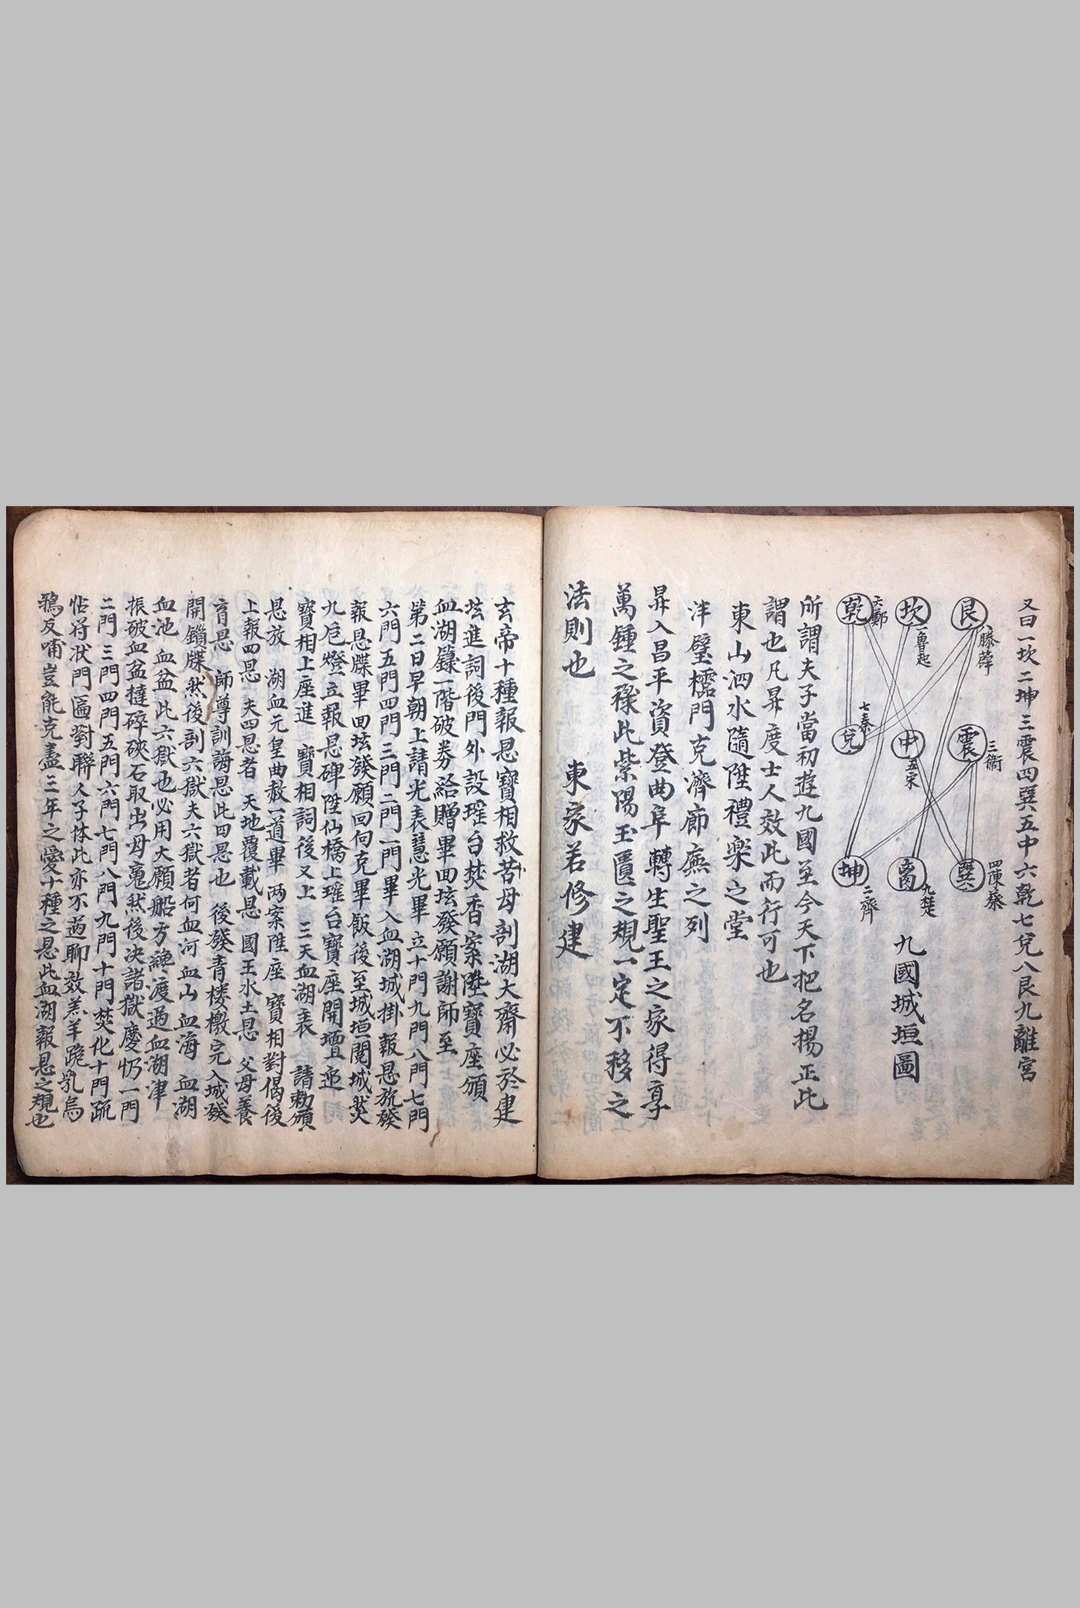 又曰一坎二坤三震四巽五中六乾七兌八艮九離宮
艮
八滕薛
震
三衛
巽
四陳蔡
坎
一魯起
中
五宋
离
九楚
乾
六鄭
兌
七秦
坤
二齊
九國城垣圖
所謂夫子當初遊九國至今天下把名揚正此
謂也凡昇度士人效此而行可也
東山泗水隨陞禮樂之堂
泮璧櫺門克濟廊廡之列
昇入昌平資登曲阜轉生聖王之家得享
萬鍾之祿此紫陽玉匱之規一定不移之
法則也 東家若修建
玄帝十種報恩寶相救苦母剖湖大齋必於建
垓進詞後門外設瑤台焚香案陞寶座頒
血湖籙一階破券給贈畢回垓發願謝師至
第二日早朝上請光表慧光畢立十門九門八門七門
六門五門四門三門二門一門畢入血湖城掛報恩旒發
報恩牒畢回垓發願回向克畢飯後至城垣開城焚
九卮燈立報恩碑陞仙橋上瑤台寶座開壇迎
寶相上座進 寶相詞後又上 三天血湖表 請勅頒
恩放 湖血元皇曲赦一道畢两案陞座 寶相對偈後
上報四恩 夫四恩者 天地覆載恩 國王水土恩 父母養
育恩 師尊訓誨恩此四恩也 後發青楼檄完入城發
開鎖牒然後剖六獄夫六獄者何血河血山 血海 血湖
血池血盆此六獄也必用大願船方纔渡過血湖津
振破血盆撻碎硤石取出母䰟然後决諸獄慶忉一門
二門三門四門五門六門七門八門九門十門焚化十門疏
帖將狀門匾對聯人子怵此亦不過聊效羔羊跪乳烏
鴉反哺豈能克盡三年之愛十種之恩此血湖報恩之規也